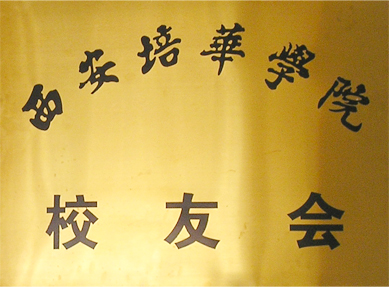 西安培華學院
校友会